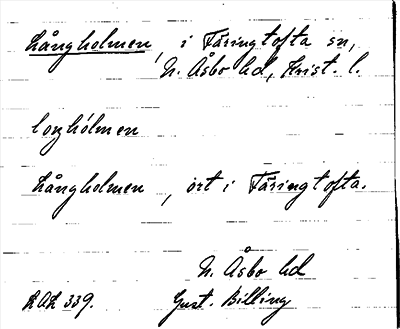 Långholmen, i Färingtofta sn,
N. Åsbo hd, Krist. l.
loŋhólmen
Långholmen, ort i Färingtofta.
N. Åsbo hd
LAL 339. Gust. Billing